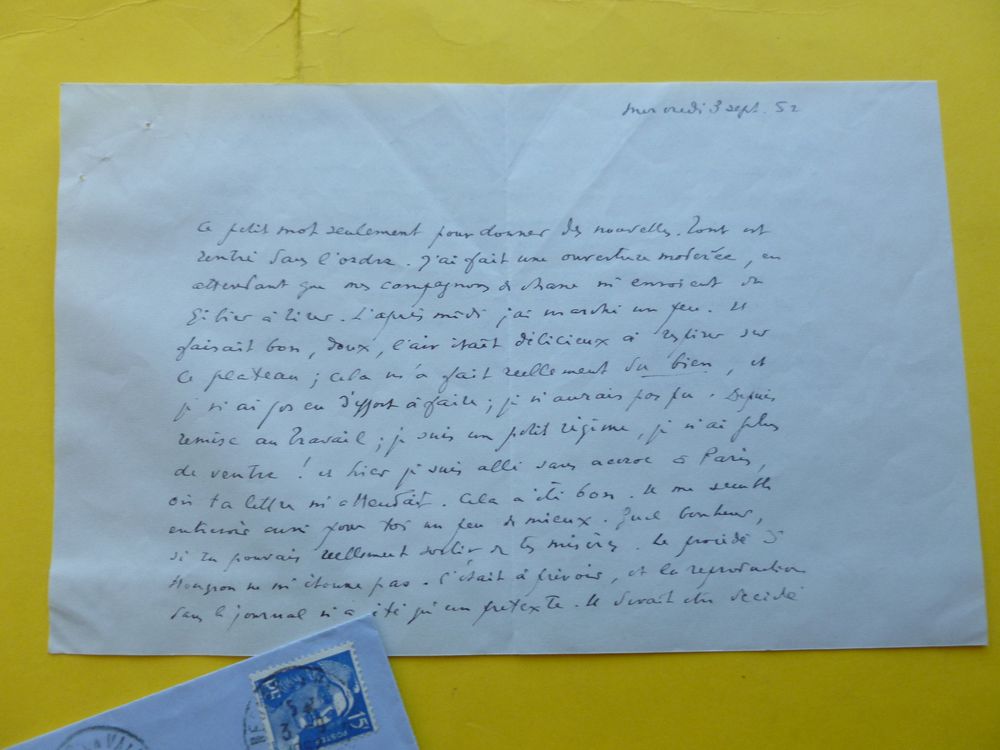 mercredi 3 sept. 52
Ce petit mot seulement pour donner des nouvelles. Tout est
rentré dans l'ordre. J'ai fait une ouverture modérée, en
attendant que mes compagnons de chasse m'envoient du
gibier à tirer. L'après midi j'ai marché un peu. Il
faisait bon, doux, l'air était délicieux à respirer sur
ce plateau ; cela m'a fait réellement du bien, et
je n'ai pas eu d'effort à faire ; je n'aurais pas pu. Depuis
remise au travail ; je suis un petit régime, je n'ai plus
de ventre ! et hier je suis allé sans accroc à Paris,
où ta lettre m'attendait. Cela a été bon. Il me semble
entrevoir aussi pour toi un peu de mieux. Quel bonheur,
si tu pouvais réellement sortir de tes misères. Le procédé
ne m'étonne pas. C'était à prévoir, et la reproduction
dans le journal n'a été qu'un prétexte. Il devait être décidé
15F
POSTES